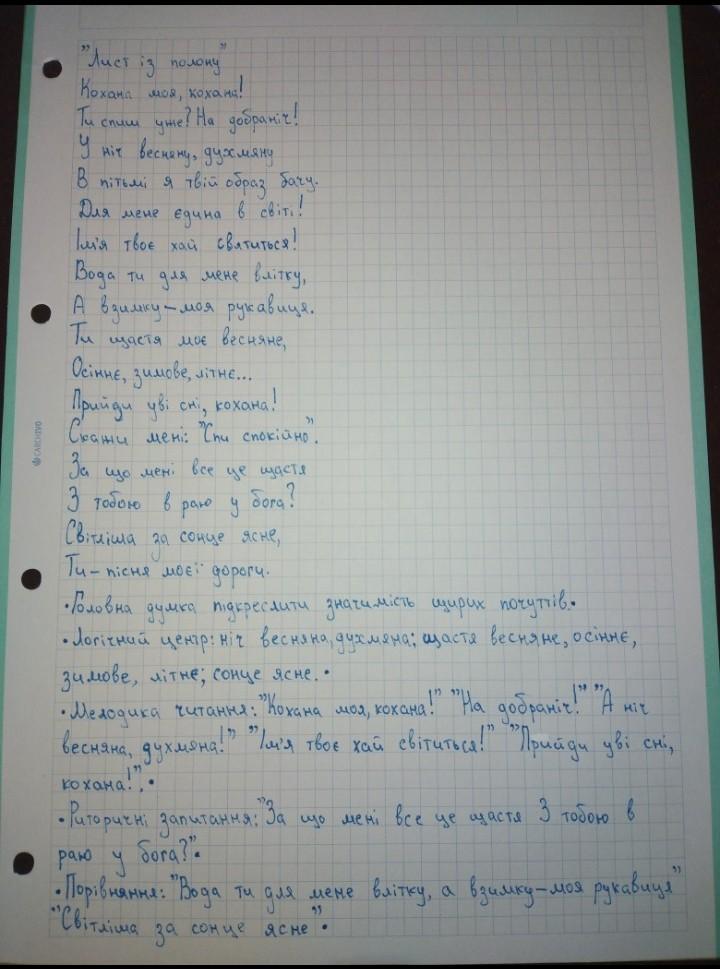 "Лист із полону"
Кохана моя, кохана!
Ти спиш уже? На добраніч!
У ніч весняну, духмяну
В пітьмі я твій образ бачу.
Для мене єдина в світі!
Ім'я твоє хай святиться!
Вода ти для мене влітку,
А взимку – моя рукавиця.
Ти щастя моє весняне,
Осіннє, зимове, літнє...
Прийди уві сні, кохана!
Скажи мені: "Спи спокійно".
За що мені все це щастя
З тобою в раю у бога?
Світліша за сонце ясне,
Ти – пісня моєї дороги.
•Головна думка підкреслити значимість щирих почуттів.•
•Логічний центр: ніч весняна, духмяна; щастя весняне, осіннє,
зимове, літнє; сонце ясне.•
•Мелодика читання: "Кохана моя, кохана!" "На добраніч!" "А ніч
весняна, духмяна!" "Ім'я твоє хай світиться!" "Прийди уві сні,
кохана!".•
•Риторичні запитання: "За що мені все це щастя З тобою в
раю у бога?"•
•Порівняння: "Вода ти для мене влітку, а взимку – моя рукавиця"
"Світліша за сонце ясне"•
CARCHIVO